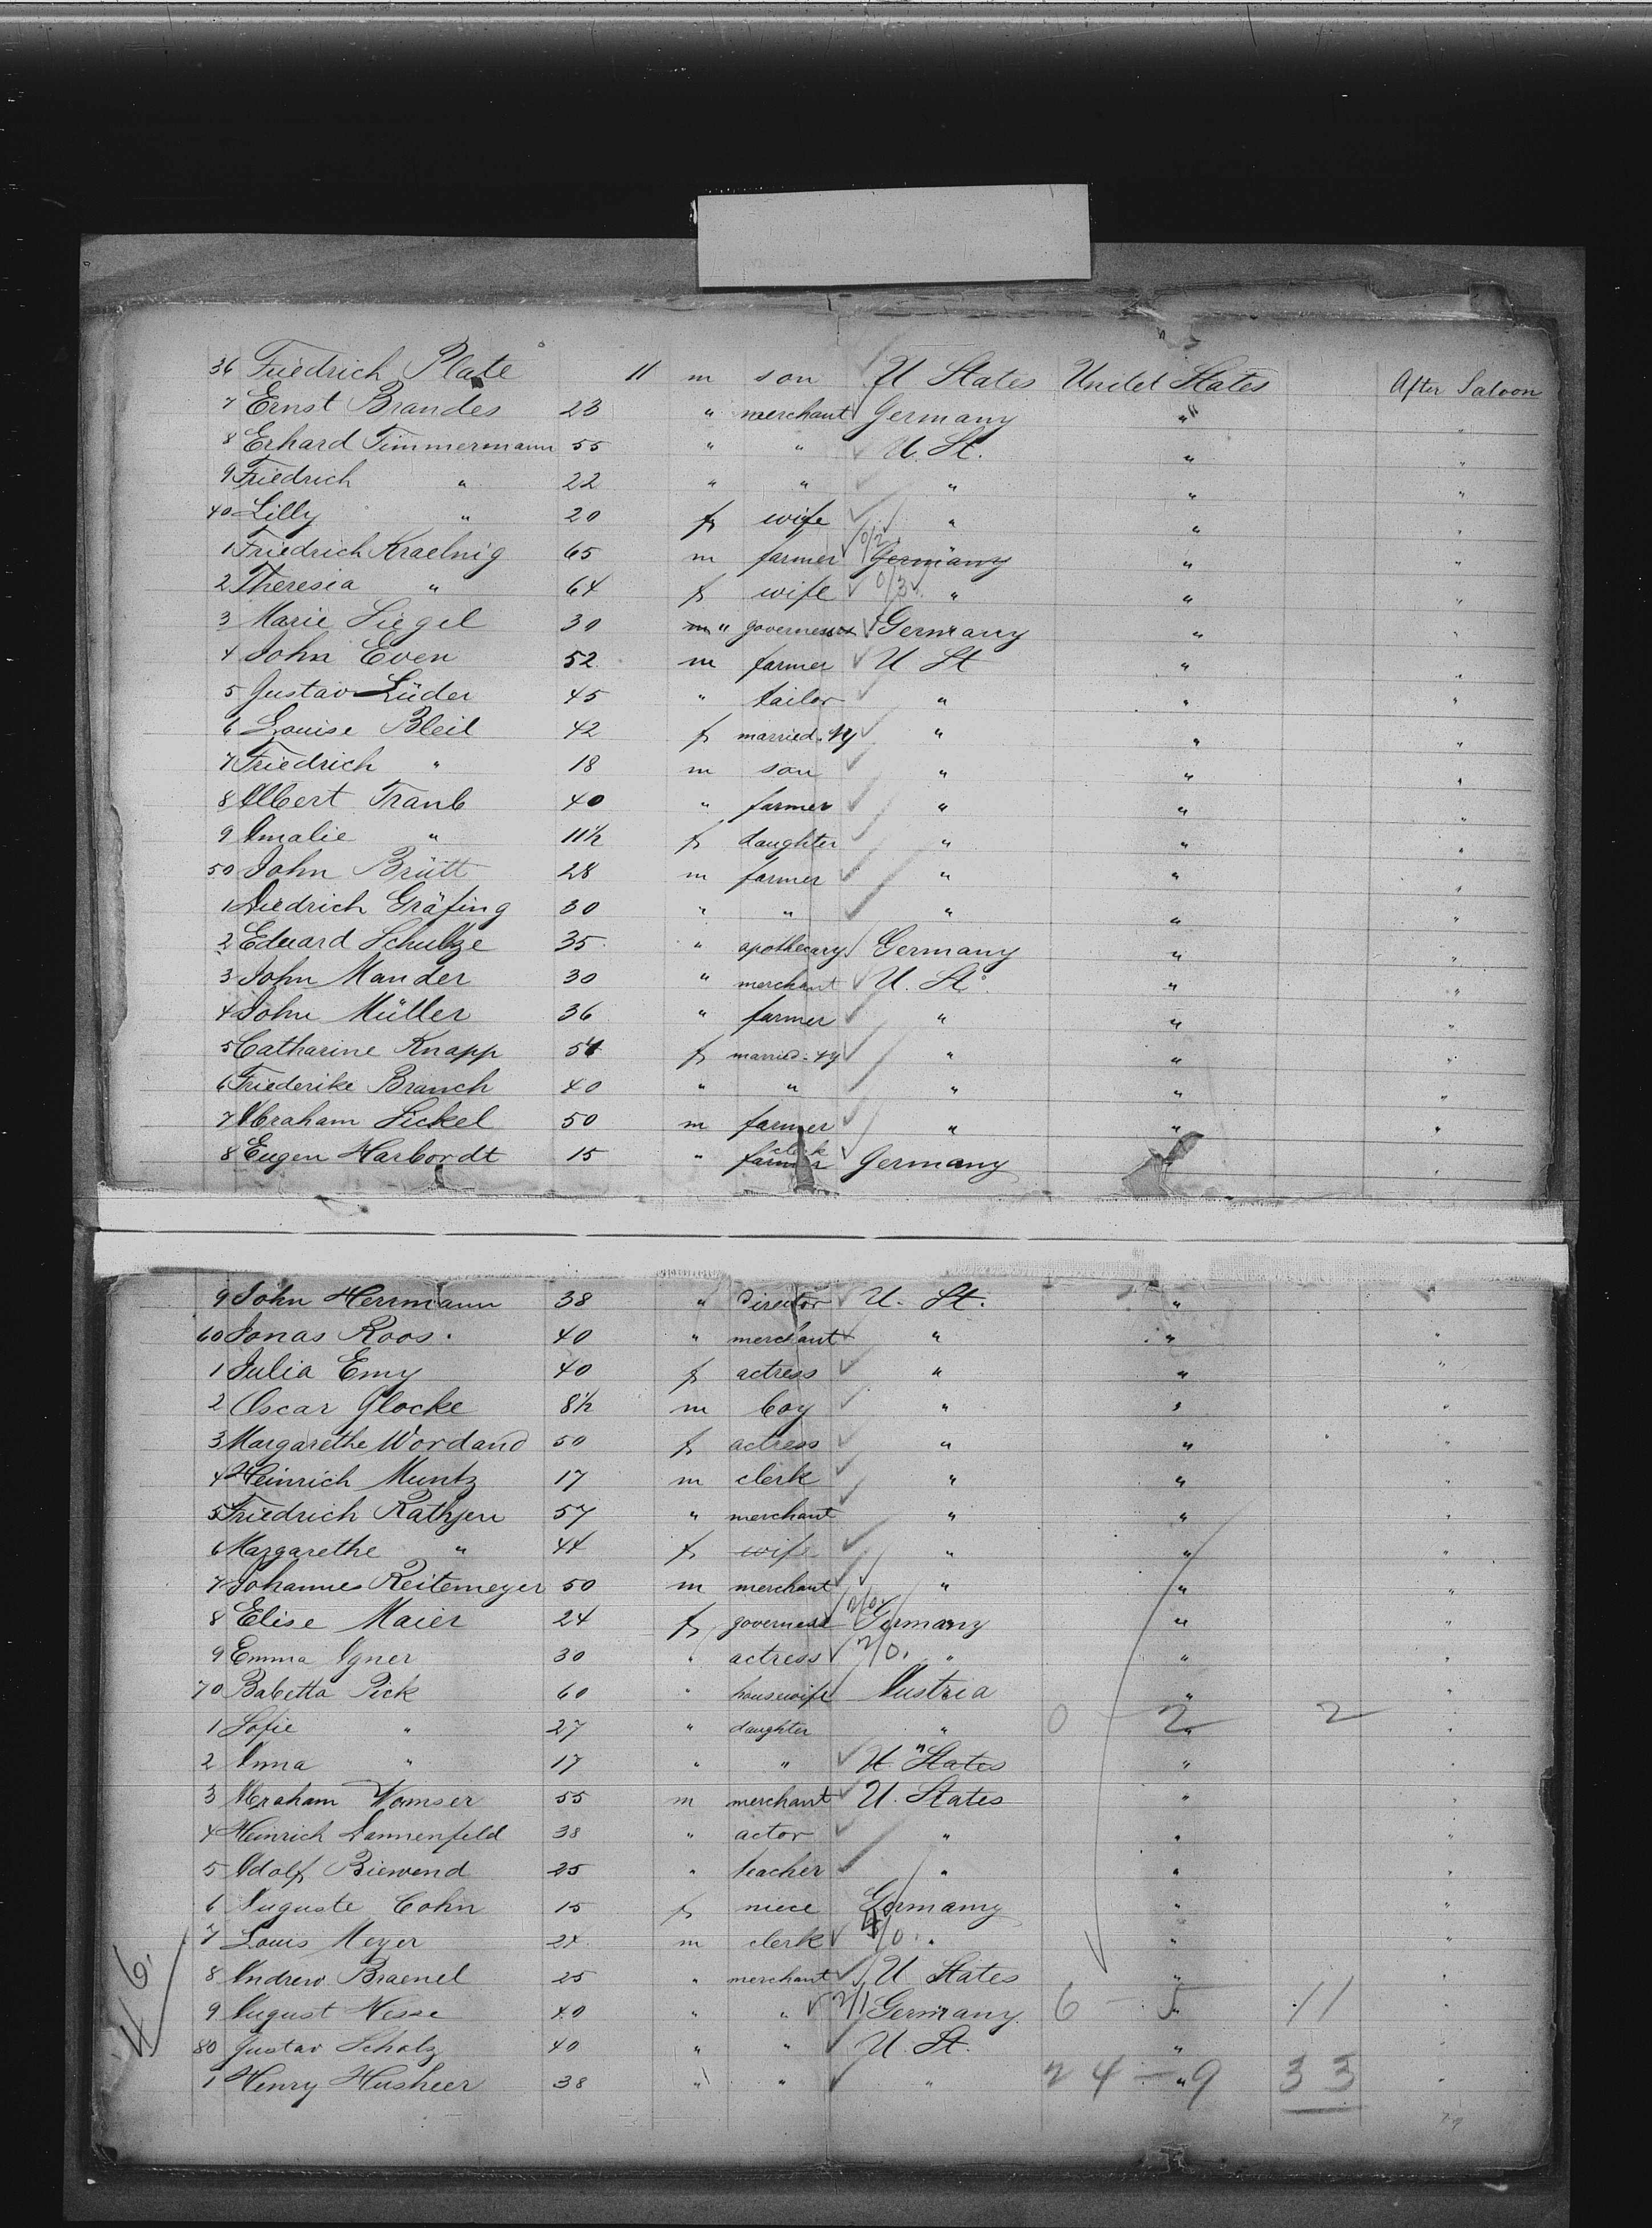 36 Friedrich Plate 11 m son U States United States After Saloon
7 Ernst Brandes 23 " merchant Germany " "
8 Erhard Timmermann 55 " " U. St. " "
9 Friedrich " 22 " " " " "
40 Lilly " 20 f wife " " "
1 Friedrich Kraelnig 65 m farmer 0/2 Germany " "
2 Theresia " 64 f wife 0/3 " " "
3 Marie Siegel 30 m " governess Germany " "
4 John Even 52 m farmer U St " "
5 Gustav Lüder 45 " tailor " " "
6 Louise Bleil 42 f married. " " "
7 Friedrich " 18 m son " " "
8 Albert Traub 40 " farmer " " "
9 Amalie " 11½ f daughter " " "
50 John Brütt 28 m farmer " " "
1 Diedrich Gräfing 30 " " " " "
2 Eduard Schultze 35 " apothecary Germany " "
3 John Mander 30 " merchant U. St. " "
4 John Müller 36 " farmer " " "
5 Catharine Knapp 51 f married. " " "
6 Friederike Branch 40 " " " " "
7 Abraham Sickel 50 m farmer " " "
8 Eugen Harbordt 15 " farmer clerk Germany "
9 John Herrmann 38 " Director U. St. " "
60 Jonas Roos. 40 " merchant " " "
1 Julia Emy 40 f actress " " "
2 Oscar Glocke 8½ m boy " " "
3 Margarethe Wordand 50 f actress " " "
4 Heinrich Muntz 17 m clerk " " "
5 Friedrich Rathjen 57 " merchant " " "
6 Margarethe " 44 f wife " " "
7 Johannes Reitemeyer 50 m merchant " " "
8 Elise Maier 24 f governess Germany " "
9 Emma Agner 30 " actress 2/0. " " "
70 Babetta Pick 60 " housewife Austria " "
1 Sofie " 27 " daughter " 0 - 2 " 2 "
2 Anna " 17 " " U States " "
3 Abraham Wamser 55 m merchant U. States " "
4 Heinrich Dannenfeld 38 " actor " " "
5 Adolf Biewend 25 " teacher " " "
6 Auguste Cohn 15 f niece Germany " "
7 Louis Meyer 24 m clerk /0. " " "
8 Andrew Braenel 25 " merchant U. States " "
9 August Nesse 40 " " 2/1 Germany. 6 - 5 " 11 "
80 Gustav Scholz 40 " " U. St. " "
1 Henry Husheer 38 " " " 24 - 9 " 33 "
46